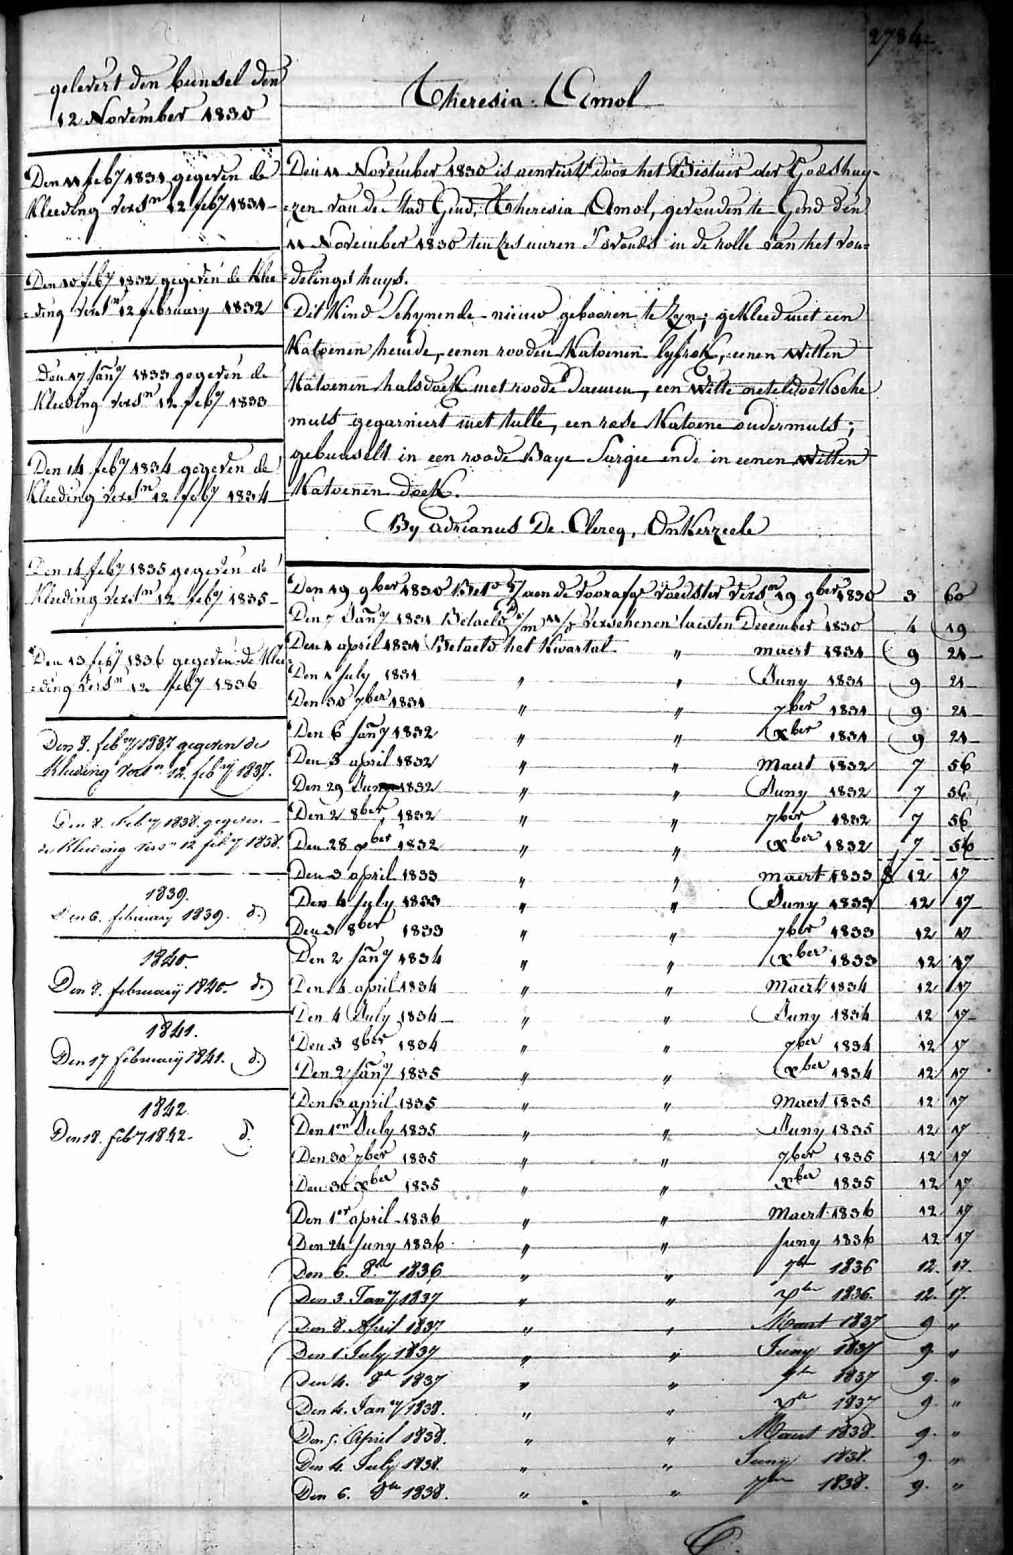 2784
gelevert den bunsel den
12 November 1830
Theresia Amol
Den 11 feb.y 1831 gegeven de
Kleeding verst.n 12 feb.y 1831
Den 10 feb.y 1832 gegeven de Klee
ding verst.n 12 february 1832
Den 17 Jan.y 1833 gegeven de
Kleeding verst.n 12 feb.y 1833
Den 14 feb.y 1834 gegeven de
Kleeding verst.n 12 feb.y 1834
Den 14 feb.y 1835 gegeven de
Kleeding verst.n 12 feb.y 1835
Den 13 feb.y 1836 gegeven de Klee
ding verst.n 12 feb.y 1836
Den 8. feb.y 1837 gegeven de
Kleeding verst.n 12. feb.y 1837.
Den 8. feb.y 1838. gegeven
de Kleeding verst.n 12 feb.y 1838.
1839.
Den 6. february 1839. d.)
1840.
Den 8. february 1840. d.)
1841.
Den 17 february 1841. d.)
1842
Den 18. feb.y 1842. d.
Den 11 November 1830 is aenveirt door het Bestuer der Godshuy-
zen van de Stad Gend, Theresia Amol, gevonden te Gend den
11 November 1830 ten zes uuren s'avonds in de rolle van het von-
delingshuys.
Dit Kind Schynende nieuw gebooren te zyn; gekleed met een
Katoenen hemde, eenen rooden Katoenen lyfrok, eenen witten
Katoenen halsdoek met roode Daemen, een witte neteldoeksche
muts gegarniert met tulle, een rose Katoene ondermuts;
gebunselt in een roode Baye Sargie ende in eenen witten
Katoenen doek.
By Adrianus De Clercq, Onkerzeele
Den 19 9ber 1830 Bet. aen de voorafg. voedster verst.n 19 9ber 1830 3 60
Den 7 Jan.y 1831 Betaeld verschenen laesten December 1830 4 19
Den 1 april 1831 Betaeld het Kwartal " maert 1831 9 21
Den 1 July 1831 " " Juny 1831 9 21
Den 30 7ber 1831 " " 7ber 1831 9 21
Den 6 Jan.y 1832 " " Xber 1831 9 21
Den 3 april 1832 " " Maert 1832 7 56
Den 29 Juny 1832 " " Juny 1832 7 56
Den 2 8ber 1832 " " 7ber 1832 7 56
Den 28 Xber 1832 " " Xber 1832 7 56
Den 3 april 1833 " " maert 1833 12 17
Den 4 July 1833 " " Juny 1833 12 17
Den 3 8ber 1833 " " 7ber 1833 12 17
Den 2 Jan.y 1834 " " Xber 1833 12 17
Den 4 april 1834 " " Maert 1834 12 17
Den 4 July 1834 " " Juny 1834 12 17
Den 3 8ber 1834 " " 7ber 1834 12 17
Den 2 Jan.y 1835 " " Xber 1834 12 17
Den 3 april 1835 " " Maert 1835 12 17
Den 1en July 1835 " " Juny 1835 12 17
Den 30 7ber 1835 " " 7ber 1835 12 17
Den 30 Xber 1835 " " Xber 1835 12 17
Den 1er april 1836 " " Maert 1836 12 17
Den 24 Juny 1836 " " Juny 1836 12 17
Den 6. 8br 1836 " " 7br 1836 12. 17.
Den 3. Jan.y 1837 " " Xbr 1836. 12. 17.
Den 8. April 1837 " " Maert 1837 9 "
Den 1 July 1837 " " Juny 1837 9. "
Den 4. 8br 1837 " " 7br 1837 9. "
Den 4. Jan.y 1838. " " Xbr 1837 9. "
Den 5. April 1838. " " Maert 1838. 9. "
Den 4. July 1838. " " Juny 1838. 9. "
Den 6. 8br 1838. " " 7br 1838. 9. "